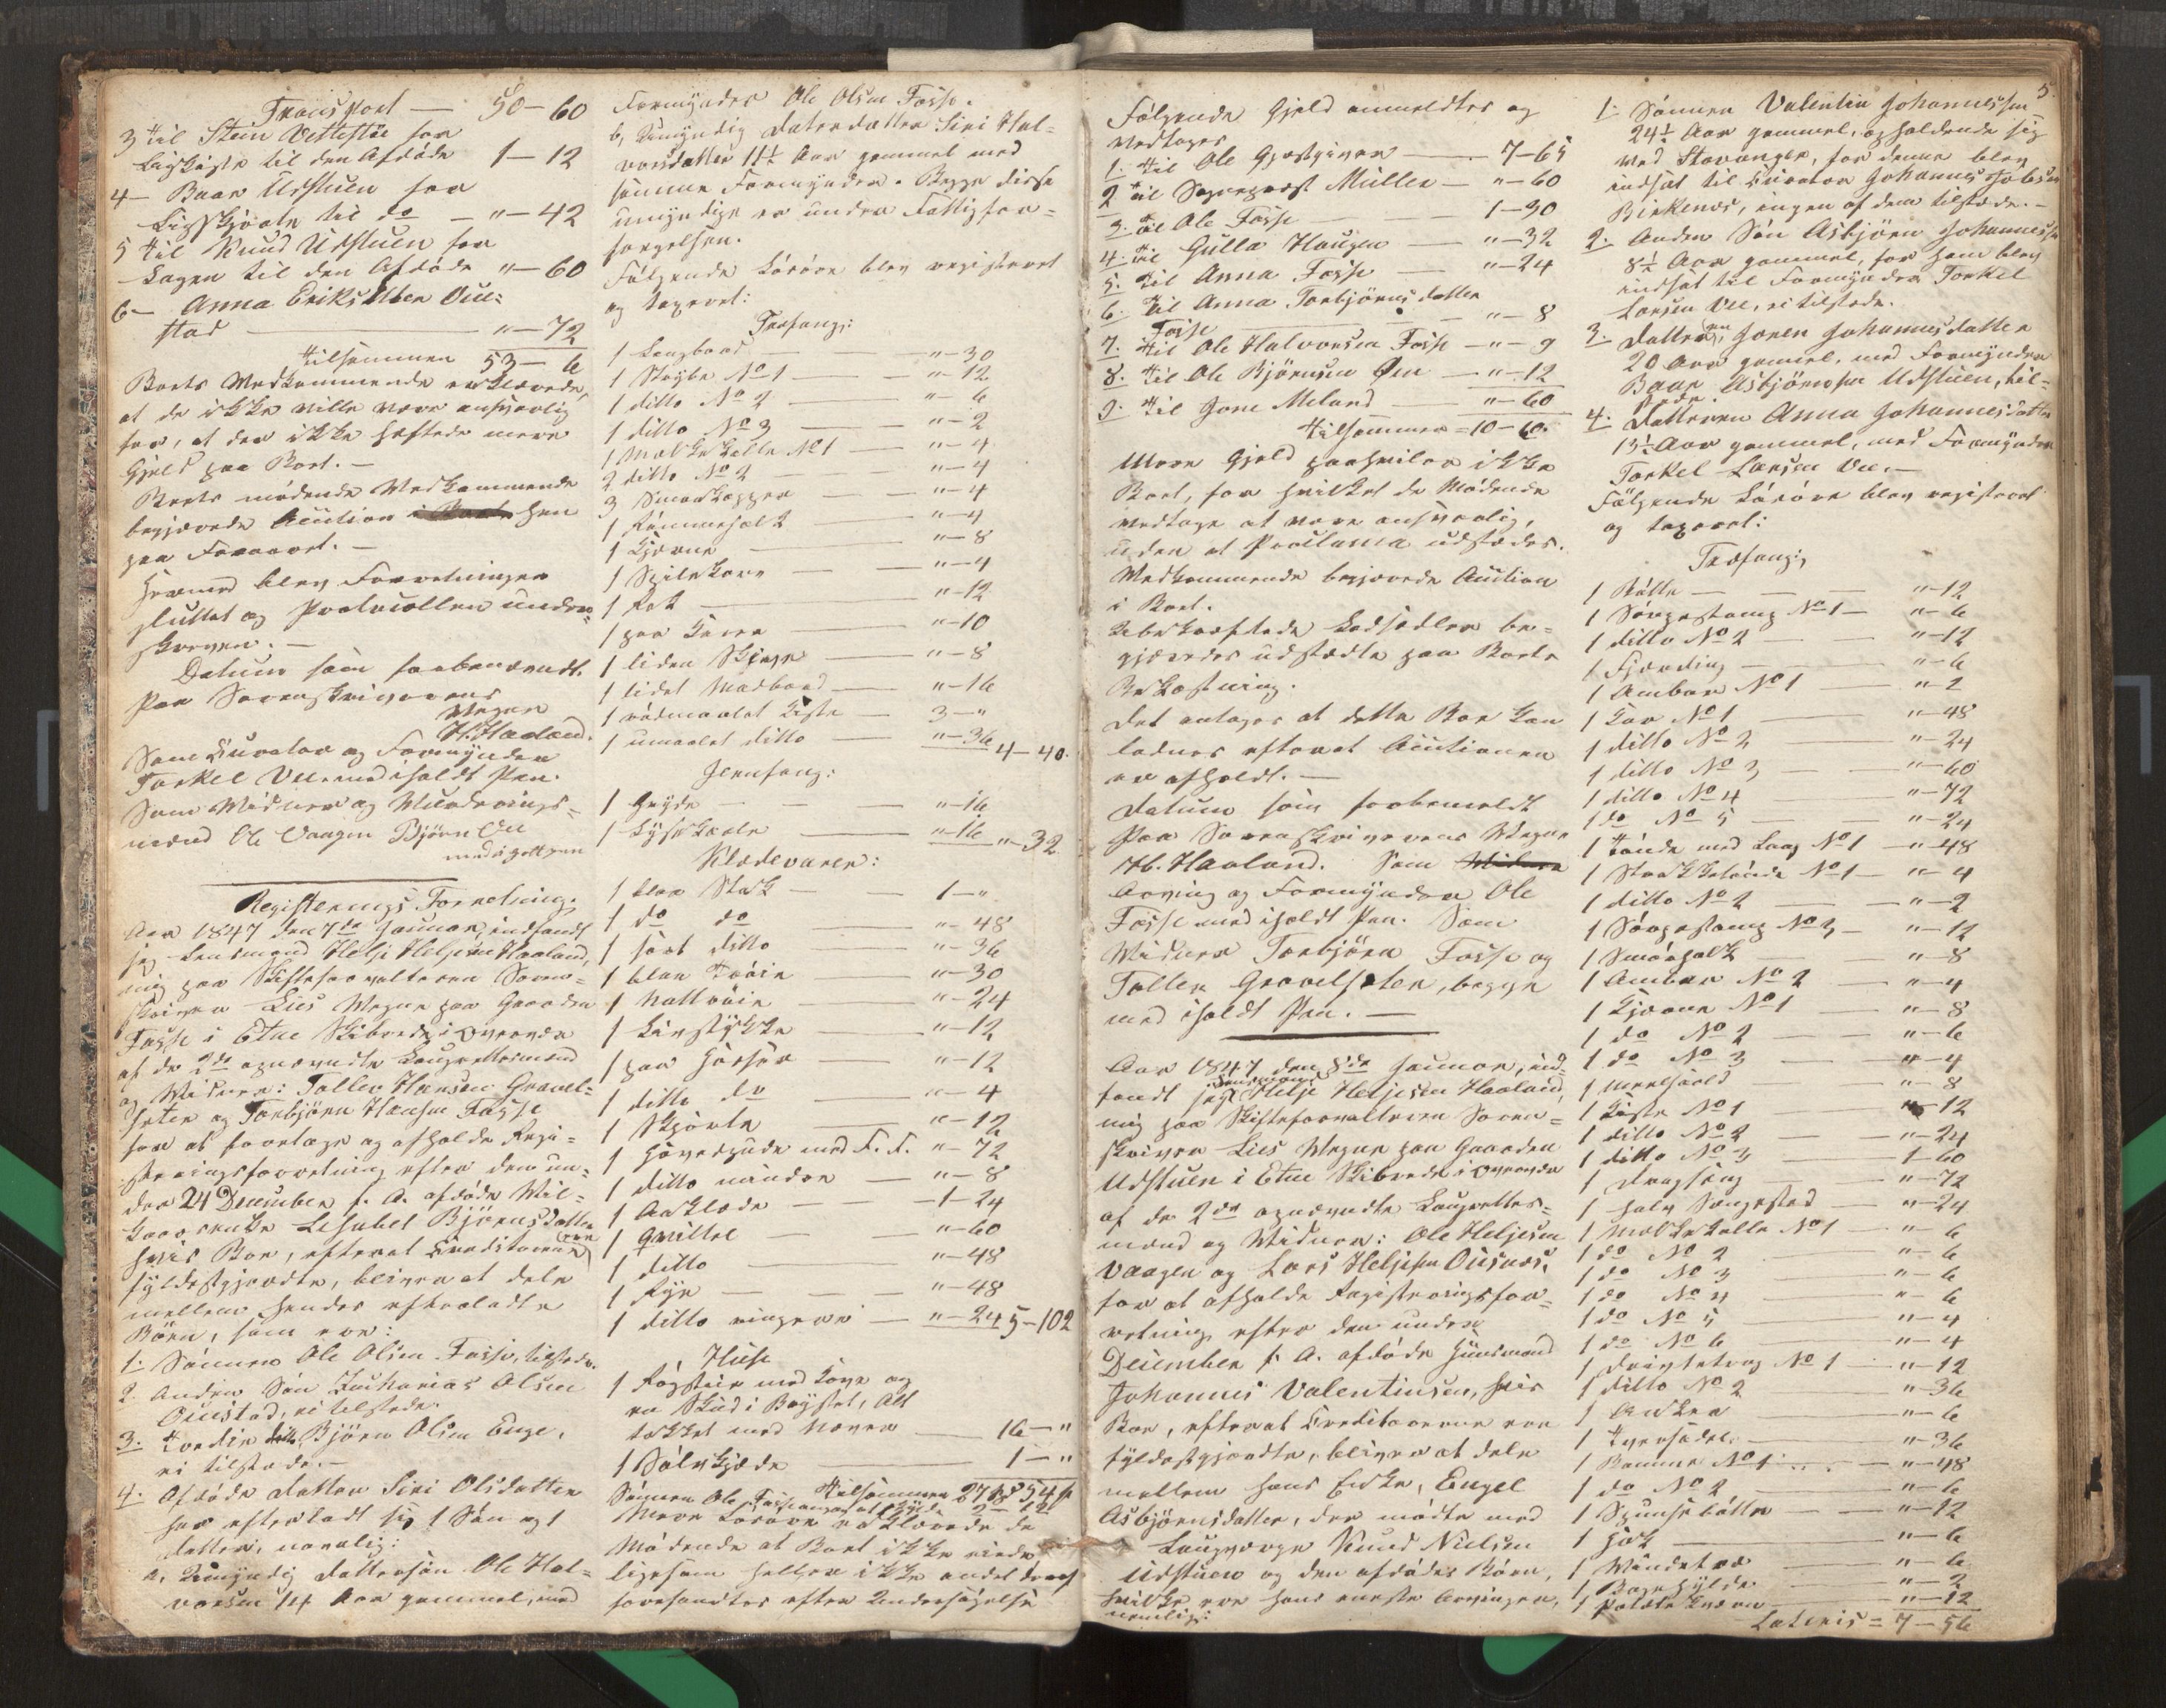 Transport — 50-60
3 til Stein Vetlestøe for
Ligkiste til den Afdøde 1-12
4 — Baar Udstuen for
Ligskjorte til do — "-42
5 til Knud Udstuen for
Lagen til den Afdøde "-60
6 — Anna Eriksdtter Vee=
stad — "-72
tilsammen 53-6
Boets Vedkommende erklærede,
at de ikke ville være ansvarlig
for, at der ikke heftede mere
Gjeld paa Boet. —
Boets mødende Vedkommende
begjærede Auction hen
paa Foraaret. —
Hermed blev Forretningen
sluttet og Protocollen under=
skreven. —
Datum som forbenævndt.
Paa Sorenskriverens
Vegne
H. Haaland.
Som Curator og Formynder
Torkel Vee med iholdt Pen.
Som Vidner og Vurderings=
mænd Ole Vaagen Bjørn Vee
med iholt pen
Registerings Forretning.
Aar 1847 den 7de Januar, indfandt
jeg Lensmand Helje Heljesen Haaland,
mig paa Skifteforvalteren Soren=
skriver Lies Vegne paa Gaarden
Fosse i Etne Skibrede i Overvær
af de 2de opnævndte Laugrettesmænd
og Vidner: Tollev Hansen Gravel=
seter og Torbjørn Hansen Fosse
for at foretage og afholde Regi=
streringsforretning efter den un=
der 24 December f. A. afdøde Vil=
kaarsenke Lisabet Bjørnsdatter
hvis Boe, efterat Creditorerne ere
fyldestgjordte, bliver at dele
mellem hendes efterladte
Børn, som ere:
1. Sønnen Ole Olsen Fosse, tilstede.
2. Anden Søn Zacharias Olsen
Ouestad, ei tilstede.
3. Tredie do Bjørn Olsen Enge,
ei tilstede. —
4. Afdøde Datter Siri Olsdatter
har efterladt sig 1 Søn og 1
Datter, navnlig:
a, Umyndig Dattersøn Ole Hal=
vorsen 14 Aar gammel, med
Formynder Ole Olsen Fosse.
b, Umyndig Daterdatter Siri Hal=
vorsdatter 11½ Aar gammel med
samme Formynder. Begge disse
umyndige er under Fattigfor=
sorgelsen.
Følgende Løsøre blev registeret
og taxeret:
Træfang:
1 Langbord — "-30
1 Strybe No 1 — "-12
1 ditto No 2 — "-6
1 ditto No 3 — "-2
1 Melkekolle No 1 — "-4
2 ditto No 2 — "-4
3 Smørkopper — "-4
1 Rømmeholk — "-4
1 Kjerne — "-8
1 — "-4
1 Rok — "-12
1 par Karrer — "-10
1 liden Skjeppe — "-8
1 lidet Madbord — "-16
1 rødmaalet Kiste — 3-"
1 umaalet ditto — "-36 4-40.
Jernfang:
1 Gryde — "-16
1 Lysekarle — "-16 "-32
Klædevarer:
1 blaa Stak — 1-"
1 do do "-48
1 sort ditto "-36
1 blaa Trøie "-30
1 Nattrøie — "-24
1 Livstykke — "-12
1 par Hoser "-12
1 ditto do — "-4
1 Skjorte "-12
1 Hovedpude med F. F. "-72
1 ditto mindre — "-8
1 Aaklæde — 1-24
1 Qvittel — "-60
1 ditto — "-48
1 Rye — "-48
1 ditto ringere — "-24 5-102
Huse
1 Røgstue med Kove og
en Skud i Røystet, Alt
takket med Næver — 16-"
1 Sølvkjæde — 1-"
Tilsammen 27 54 s
Sønnen Ole Fosse
Mere Løsøre erklærede de
Mødende at Boet ikke eiede
ligesom heller ikke andet deraf
forefandtes efter Undersøgelse
Følgende Gjeld anmeldtes og
vedtoges
1. til Ole Gjestgiver — 7-65
2 til Sogneprest Müller — "-60
3. til Ole Fosse — 1-30
4. til Gulla Haugen — "-32
5. til Anna Fosse — "-24
6. til Anna Torbjørnsdatter
Fosse — "-8
7. til Ole Halvorsen Fosse — "-9
8. til Ole Bjørnsen Øen — "-12
9. til Jone Meland — "-60
tilsammen = 10-60.
Mere Gjeld paahviler ikke
Boet, for hvilket de Mødende
vedtage at være ansvarlig,
uden at Proclama udstædes.
Vedkommende begjærede Auction
i Boet.
Bekræftede Lodsedler be=
gjæredes udstædte paa Boets
Bekostning.
Det antages at dette Boe kan
lodnes efterat Auctionen
er afholdt. —
Datum som forbemeldt
Paa Sorenskriverens Vegne
H. Haaland. Som Vidner
Arving og Formynder Ole
Fosse med iholdt Pen. Som
Vidner Torbjørn Fosse og
Tollev Gravelseter, begge
med iholdt Pen. —
Aar 1847 den 8de Januar, ind=
fandt jeg Lensmand Helje Heljesen Haaland,
mig paa Skifteforvalteren Soren=
skriver Lies Vegne paa Gaarden
Udstuen i Etne Skibrede i Overvær
af de 2de opnævndte Laugrettes=
mænd og Vidner: Ole Heljesen
Vaagen og Lars Heljesen Ousnæs.
for at afholde Registreringsfor=
retning efter den under
December f. A. afdøde Huusmand
Johannes Valentinsen, hvis
Boe, efterat Creditorerne ere
fyldestgjordte, bliver at dele
mellem hans Enke, Engel
Asbjørnsdatter, der mødte med
Laugværge Knud Nielsen
Udstuen og den afdødes Børn,
hvilke ere hans eneste Arvinger,
nemlig:
5.
1. Sønnen Valentin Johannessen
24½ Aar gammel, opholdende sig
ved Stavanger, for denne blev
indsat til Curator Johannes Jobsen
Birkenæs, ingen af dem tilstæde. —
2. Anden Søn Asbjørn Johannessen
8½ Aar gammel, for ham blev
indsat til Formynder Torkel
Larsen Vee, ei tilstede.
3. Datteren, Joren Johannesdatter
20 Aar gamel, med Formynder
Baar Asbjørnsen Udstuen, til=
stede.
4. Datteren Anna Johannesdatter
13½ Aar gammel, med Formynder
Torkel Larsen Vee. —
Følgende Løsøre blev registeret
og taxeret:
Træfang:
1 Bøtte — "-12
1 Sørpestamp No 1 — "-6
1 ditto No 2 — "-12
1 Fjerding — "-6
1 Ambar No 1 — "-2
1 Kar No 1 — "-48
1 ditto No 2 — "-24
1 ditto No 3 — "-60
1 ditto No 4 — "-72
1 do No 5 — "-24
1 Tønde med Laag No 1 — "-48
1 Strokketønde No 1 — "-4
1 ditto No 2 — "-2
1 Sørpestamp No 3 — "-12
1 Smørholk — "-8
1 Ambar No 2 — "-4
1 Kjerne No 1 — "-8
1 do No 2 — "-6
1 do No 3 — "-4
1 Meelsold — "-8
1 Kiste No 1 — "-12
1 ditto No 2 — "-24
1 ditto No 3 — 1-60
1 Dragseng — "-72
1 halv Sengested — "-24
1 Melkekolle No 1 — "-6
1 do No 2 — "-6
1 do No 3 — "-6
1 do No 4 — "-6
1 do No 5 — "-4
1 do No 6 — "-4
1 Deigtetrog No 1 — "-12
1 ditto No 2 — "-36
1 Anker — "-6
1 Tversadel — "-36
1 Komme No 1 — "-48
1 do No 2 — "-6
1 Spunsebøtte — "-12
1 Høk — "-6
1 Vindetræ — "-6
1 Bagefjøl — "-2
1 Potetekværn — "-12
Lateris = 7-56